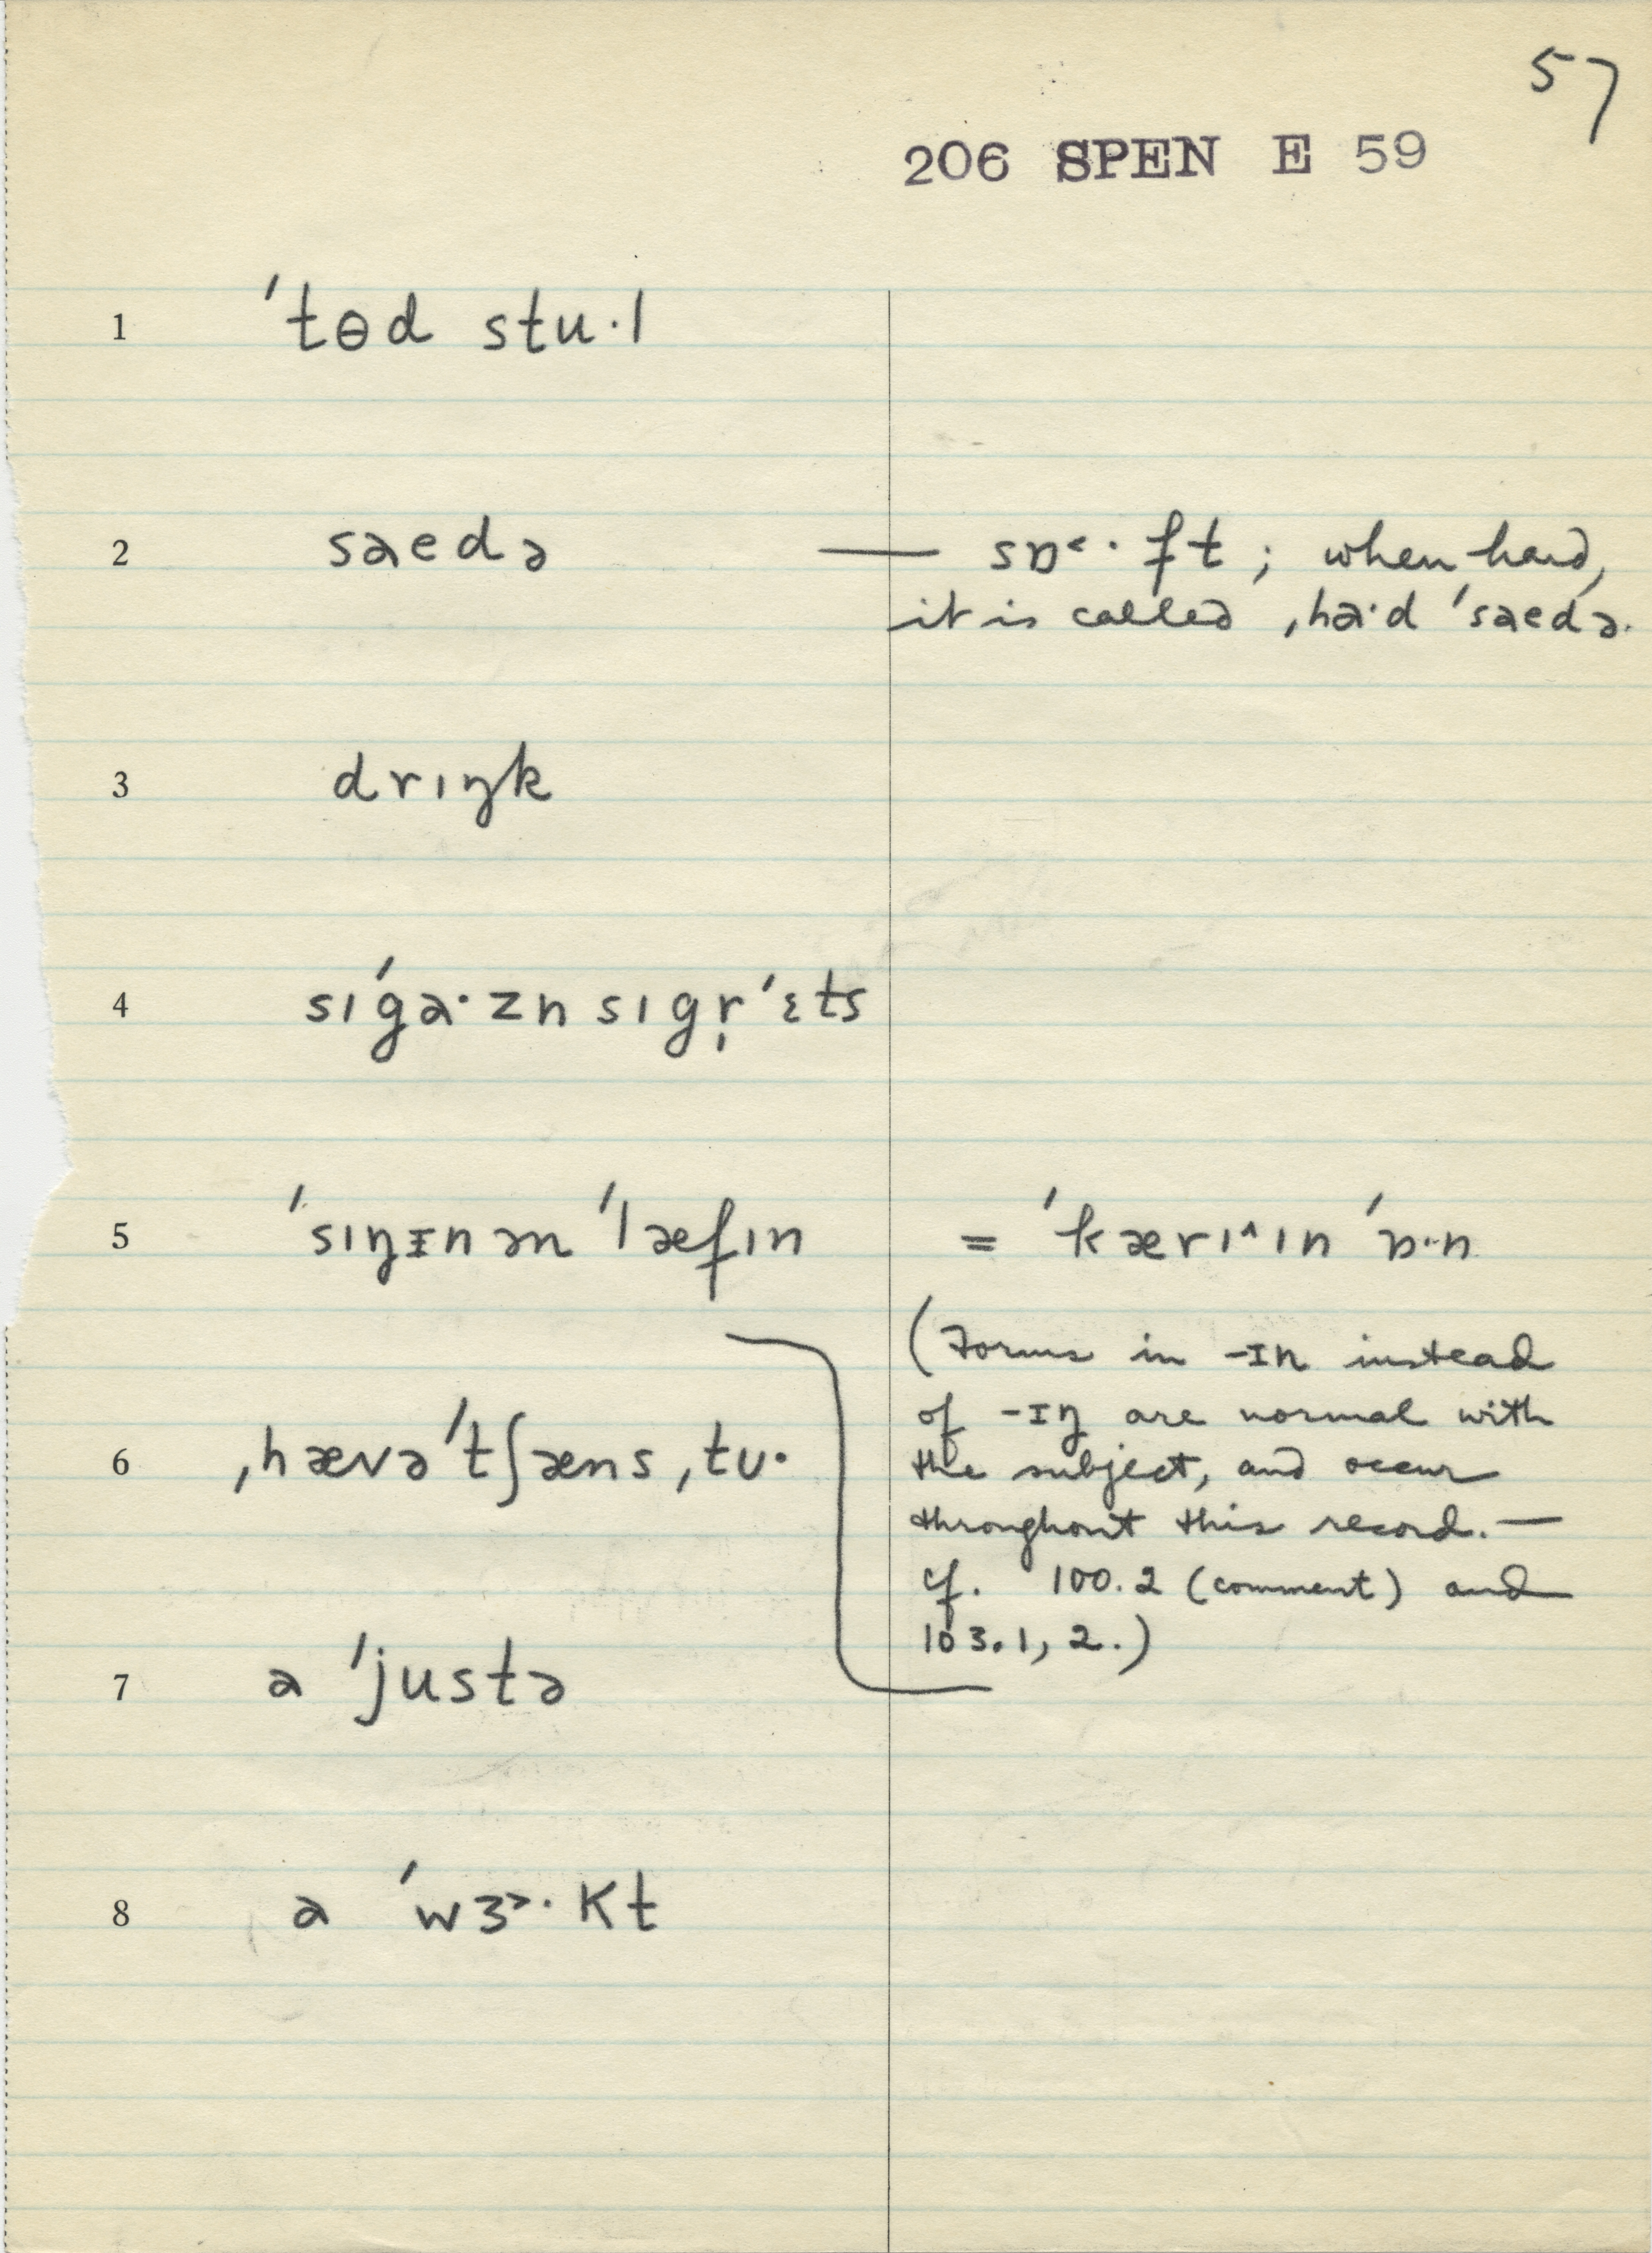 57
206 SPEN E 59
1 ˈtɵd stu·l
2 saedə — sɒ˂·ft ; when hard,
it is called ˌha·d ˈsaedə.
3 drɪŋk
4 sɪˈga·zn sɪgr̩ˈɛts
5 ˈsɪŋɪn ən ˈlæfɪn = ˈkærɪ^ɪn ˈɒ·n
(Forms in -ɪn instead
of -ɪŋ are normal with
the subject, and occur
throughout this record. —
cf. 100.2 (comment) and
103.1, 2.)
6 ˌhævəˈtʃæns ˌtʊ·
7 a ˈjustə
8 a ˈwɜ˃·kt